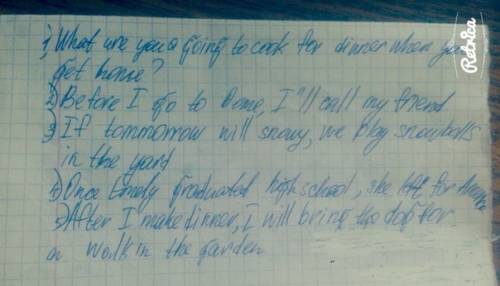 1) What are you going to cook for dinner when you
get home?
2) Before I go to home, I'll call my friend
3) If tommorow will snowy, we play snowballs
in the yard
4) Once Emely graduated high school, she left for America
5) After I make dinner, I will bring the dog for
a walk in the garden
Retrica